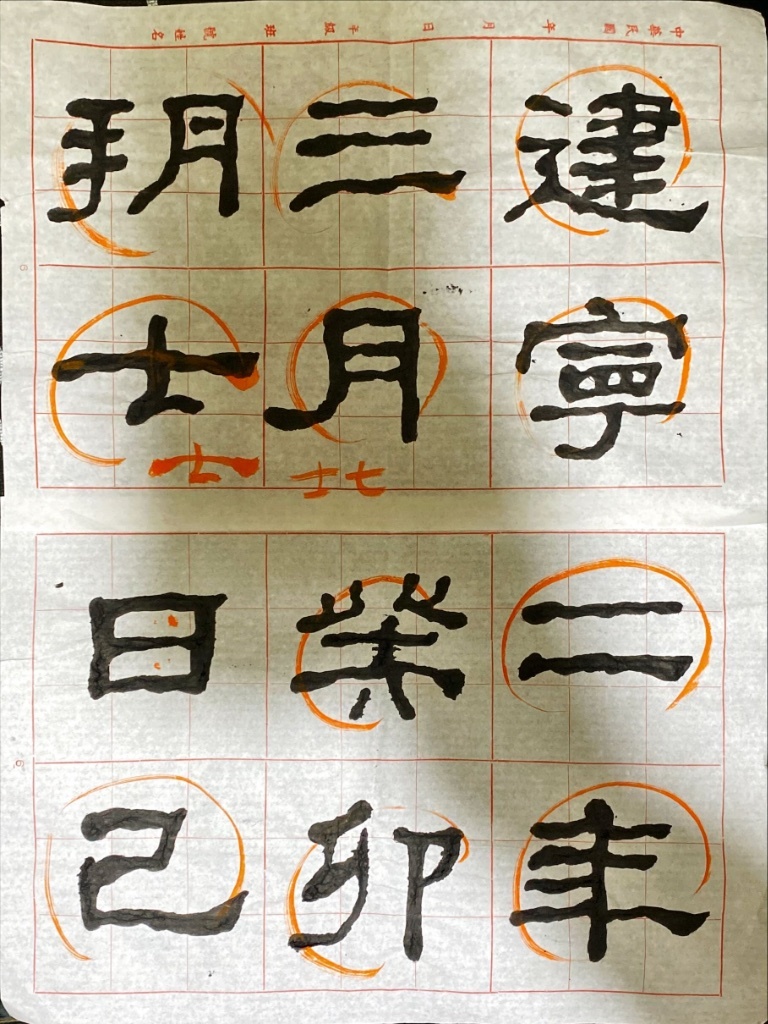 中華民國 年 月 日 年級 班 號姓名
建寧二年
三月癸卯
朔七日己